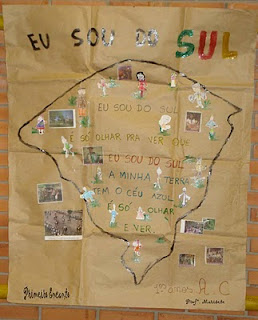 EU SOU DO SUL
EU SOU DO SUL
É SÓ OLHAR PRA VER QUE
EU SOU DO SUL
A MINHA TERRA
TEM O CÉU AZUL
É SÓ OLHAR
E VER
Primeiro Encanto
A C
Profª